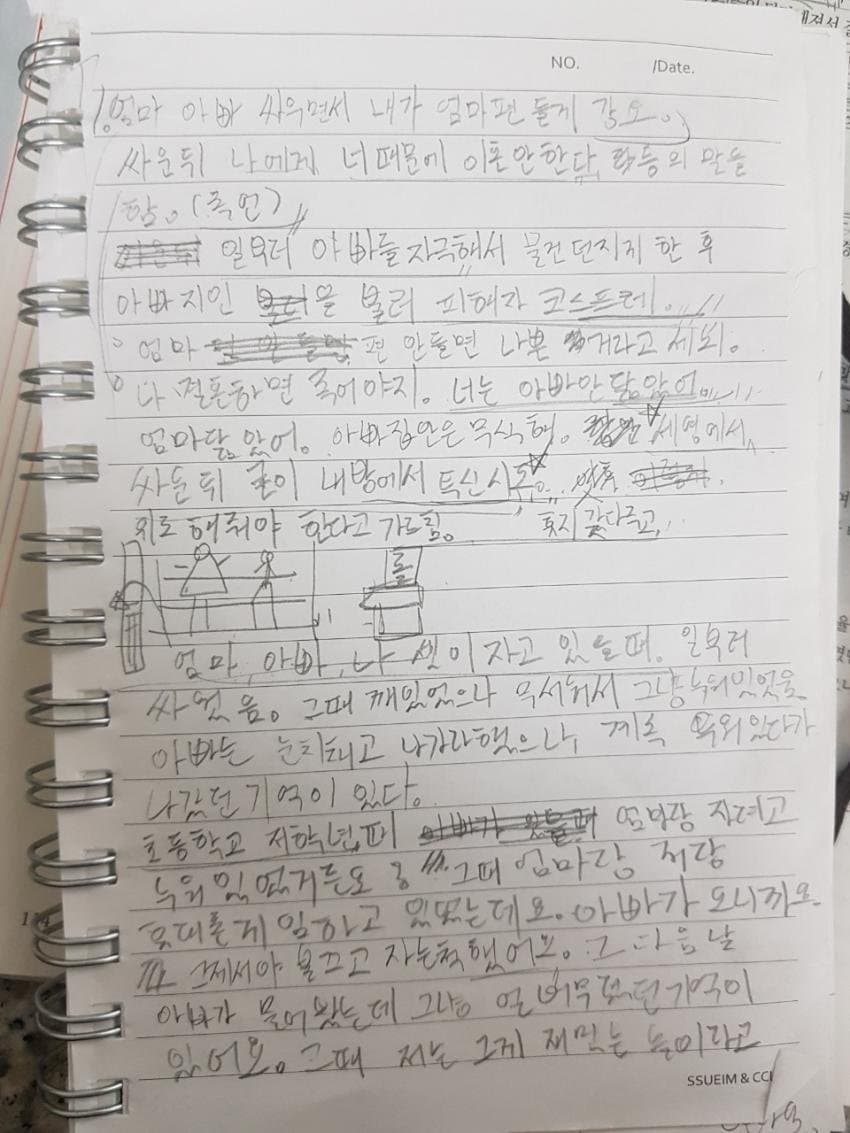 NO. /Date.
엄마 아빠 싸우면서 내가 엄마편 들게 강요.
싸운뒤 나에게 너 때문에 이혼안한다, 등의 말들
함. (폭언)
일부러 아빠를 자극해서 물건던지게 한 후
아빠지인을 불러 피해자 코스프레.
엄마 편 안들면 나쁜 거라고 세뇌.
나 결혼하면 죽어야지. 너는 아빠안닮았어
엄마닮았어. 아빠집안은 무식해. 세명에서
싸운뒤 굳이 내방에서
위로해줘야 한다고 가르침. 휴지 갖다주고,
롤
엄마, 아빠, 나 셋이 자고 있을때. 일부러
싸웠음. 그때 깨있었으나 무서워서 그냥 누워있었음
아빠는 눈치채고 나가라했으나, 계속 누워있다가
나갔던 기억이 있다.
초등학교 저학년때 엄마랑 자려고
누워 있었거든요 그때 엄마랑 저랑
휴대폰게임하고 있었는데요. 아빠가 오니까요
그제서야 불끄고 자는척했어요. 그 다음날
아빠가 물어봤는데 그냥 얼버무렸던기억이
있어요. 그때 저는 그게 재밌는 놀이라고
SSUEIM & CCI